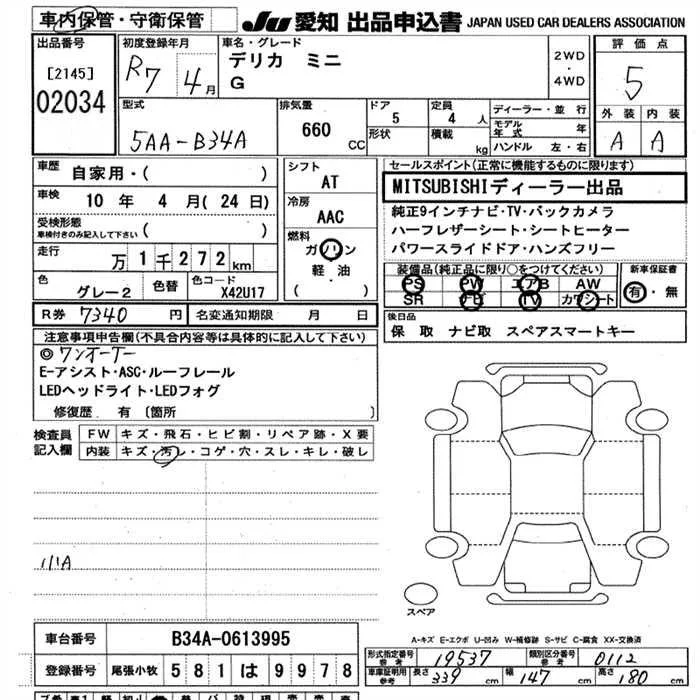 車内保管・守衛保管
JU 愛知 出品申込書 JAPAN USED CAR DEALERS ASSOCIATION
出品番号
[2145]
02034
初度登録年月
R7 4月
車名・グレード
デリカ ミニ
G
2WD
・
4WD
評価点
5
外装 内装
A A
型式
5AA-B34A
排気量
660 CC
ドア
5
形状
定員
4 人
積載
kg
ディーラー・並行
モデル年式 年
ハンドル 左・右
車歴
自家用・( )
車検
10 年 4 月(24 日)
受検形態
車検付きのみ記入して下さい ( )
走行
万 1 千 2 7 2 km
色
グレー2
色替
色コード
X42U17
シフト
AT
冷房
AAC
燃料
ガソリン
軽・油
( )
セールスポイント(正常に機能するものに限ります)
MITSUBISHIディーラー出品
純正9インチナビ・TV・バックカメラ
ハーフレザーシート・シートヒーター
パワースライドドア・ハンズフリー
装備品(純正品に限り○をつけてください)
PS PW エアB AW
SR ナビ TV カワシート
新車保証書
有・無
R券 7340 円
名変通知期限 月 日
後日品
保 取 ナビ取 スペアスマートキー
注意事項申告欄(不具合内容等は具体的に記入して下さい)
◎ワンオーナー
E-アシスト・ASC・ルーフレール
LEDヘッドライト・LEDフォグ
修復歴 有 〔箇所 〕
検査員記入欄
FW キズ・飛石・ヒビ割・リペア跡・X要
内装 キズ・汚レ・コゲ・穴・スレ・キレ・破レ
スペア
A-キズ E-エクボ U-凹み W-補修跡 S-サビ C-腐食 XX-交換済
車台番号
B34A-0613995
登録番号
尾張小牧 5 8 1 は 9 9 7 8
形式指定番号 参考
19537
類別区分番号 参考
0112
車庫証明用 参考
長さ 339 cm
幅 147 cm
高さ 180 cm